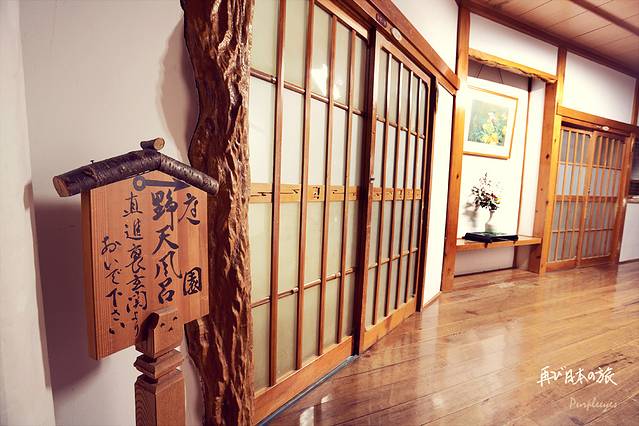 庭園
野天風呂
直進裏玄関より
おいで下さい
再び日本の旅
Purpleeyes